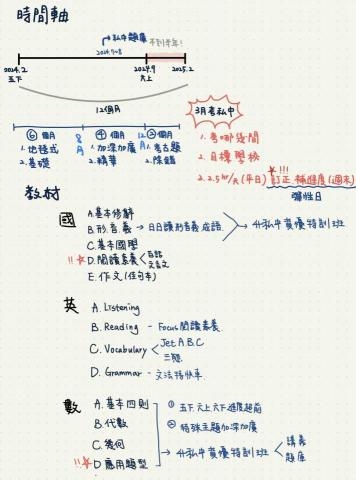 時間軸
私中題庫
不到半年!
2024.7~8
2024.2
2024.9
2025.2
五下
六上
12個月
⑥ 個月
8月
④ 個月
12月
② 個月
1. 地毯式
2. 基礎
1. 加深加廣
2. 精華
1. 考古題
2. 除錯
3月考私中
1. 考哪幾間
2. 目標學校
3. 2.5hr/天(平日) 訂正 補進度(週末)
!!!
彈性日
教材
國
A. 基本修辭
B. 形.音.義 → 日日讀形音義 成語
C. 基本國學
!! D. 閱讀素養 白話 文言文
E. 作文(佳句本)
→ 升私中資優特訓班
英
A. Listening
B. Reading - Focus閱讀素養.
C. Vocabulary Jet A.B.C 三題.
D. Grammar - 文法特快車.
數
A. 基本四則
B. 代數
C. 幾何
!! D 應用題型
① 五下.六上六下進度超前
② 特殊主題加深加廣
→ 升私中資優特訓班 講義 題庫